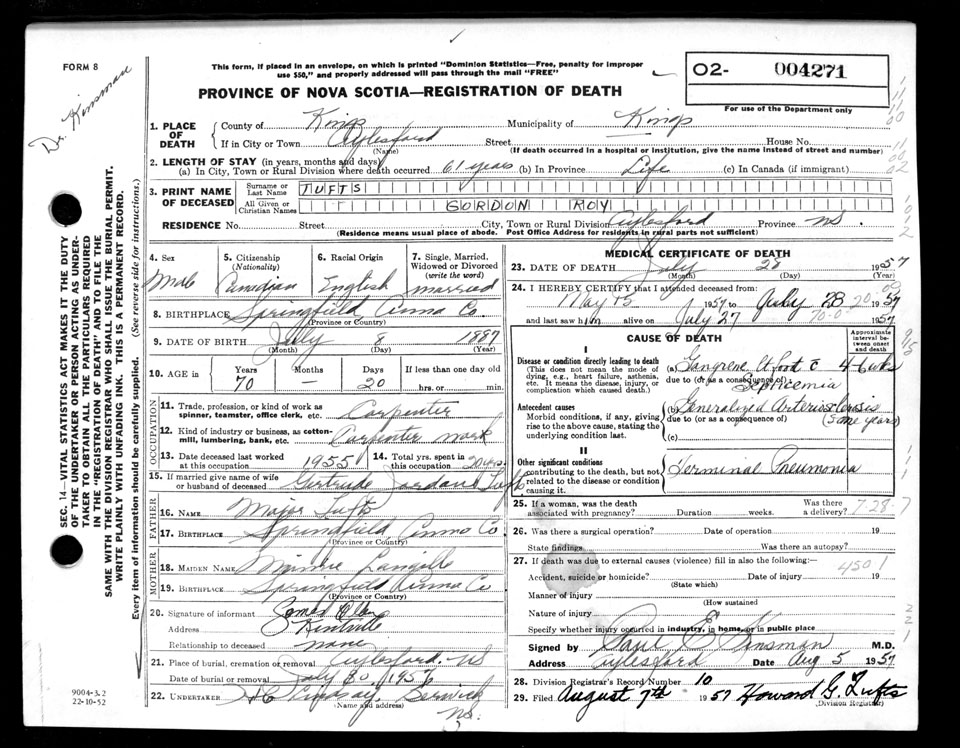 FORM 8
Dr. Kinsman
This form, if placed in an envelope, on which is printed "Dominion Statistics—Free, penalty for improper
use $50," and properly addressed will pass through the mail "FREE"
O2- 004271
For use of the Department only
PROVINCE OF NOVA SCOTIA—REGISTRATION OF DEATH
1. PLACE OF DEATH County of Kings Municipality of Kings
If in City or Town Aylesford Street House No.
(Name) (If death occurred in a hospital or institution, give the name instead of street and number)
2. LENGTH OF STAY (in years, months and days)
(a) In City, Town or Rural Division where death occurred 61 years (b) In Province Life (c) In Canada (if immigrant)
3. PRINT NAME OF DECEASED Surname or Last Name TUFTS
All Given or Christian Names GORDON ROY
RESIDENCE No. Street City, Town or Rural Division Aylesford Province NS
(Residence means usual place of abode. Post Office Address for residents in rural parts not sufficient)
4. Sex Male
5. Citizenship (Nationality) Canadian
6. Racial Origin English
7. Single, Married, Widowed or Divorced (write the word) married
8. BIRTHPLACE Springfield Anna Co
(Province or Country)
9. DATE OF BIRTH July 8 1887
(Month) (Day) (Year)
10. AGE Years 70 Months — Days 20 If less than one day old
hrs. or min.
OCCUPATION
11. Trade, profession, or kind of work as spinner, teamster, office clerk, etc. Carpenter
12. Kind of industry or business, as cotton-mill, lumbering, bank, etc. Carpenter work
13. Date deceased last worked at this occupation 1955
14. Total yrs. spent in this occupation
15. If married give name of wife or husband of deceased Gertrude Jordan Tufts
FATHER
16. NAME Major Tufts
17. BIRTHPLACE Springfield Anna Co
(Province or Country)
MOTHER
18. MAIDEN NAME Minnie Langille
19. BIRTHPLACE Springfield Anna Co
(Province or Country)
20. Signature of informant
Address Kentville
Relationship to deceased none
21. Place of burial, cremation or removal Aylesford. NS
Date of burial or removal July 30, 1957
22. UNDERTAKER Lindsay Berwick
(Name and address) NS.
MEDICAL CERTIFICATE OF DEATH
23. DATE OF DEATH July 28 1957
(Month) (Day) (Year)
24. I HEREBY CERTIFY that I attended deceased from:
May 15 1957 to July 28 1957
and last saw him alive on July 27 1957
CAUSE OF DEATH
Approximate interval between onset and death
I
Disease or condition directly leading to death
(This does not mean the mode of dying, e.g., heart failure, asthenia, etc. It means the disease, injury, or complication which caused death.)
(a) Gangrene lt foot c 4-6 wks
due to (or as a consequence of) Septicemia
Antecedent causes
Morbid conditions, if any, giving rise to the above cause, stating the underlying condition last.
(b) Generalized Arteriosclerosis
due to (or as a consequence of) (some years)
(c)
II
Other significant conditions
contributing to the death, but not related to the disease or condition causing it.
Terminal Pneumonia
25. If a woman, was the death associated with pregnancy? Duration weeks. Was there a delivery? 7-28-7
26. Was there a surgical operation? Date of operation 19
State findings Was there an autopsy?
27. If death was due to external causes (violence) fill in also the following:—
4501
Accident, suicide or homicide? Date of injury 19
(State which)
Manner of injury
(How sustained
Nature of injury
Specify whether injury occurred in industry, in home, or in public place
Signed by Paul E Kinsman M.D.
Address Aylesford Date Aug 5 1957
28. Division Registrar's Record Number 10
29. Filed August 7th 1957 Howard G. Tufts
(Division Registrar)
SEC. 14—VITAL STATISTICS ACT MAKES IT THE DUTY
OF THE UNDERTAKER OR PERSON ACTING AS UNDER-
TAKER TO OBTAIN ALL THE PARTICULARS REQUIRED
IN THE "REGISTRATION OF DEATH" AND TO FILE THE
SAME WITH THE DIVISION REGISTRAR WHO SHALL ISSUE THE BURIAL PERMIT.
WRITE PLAINLY WITH UNFADING INK. THIS IS A PERMANENT RECORD.
Every item of information should be carefully supplied. (See reverse side for instructions.)
9004-3.2
22-10-52